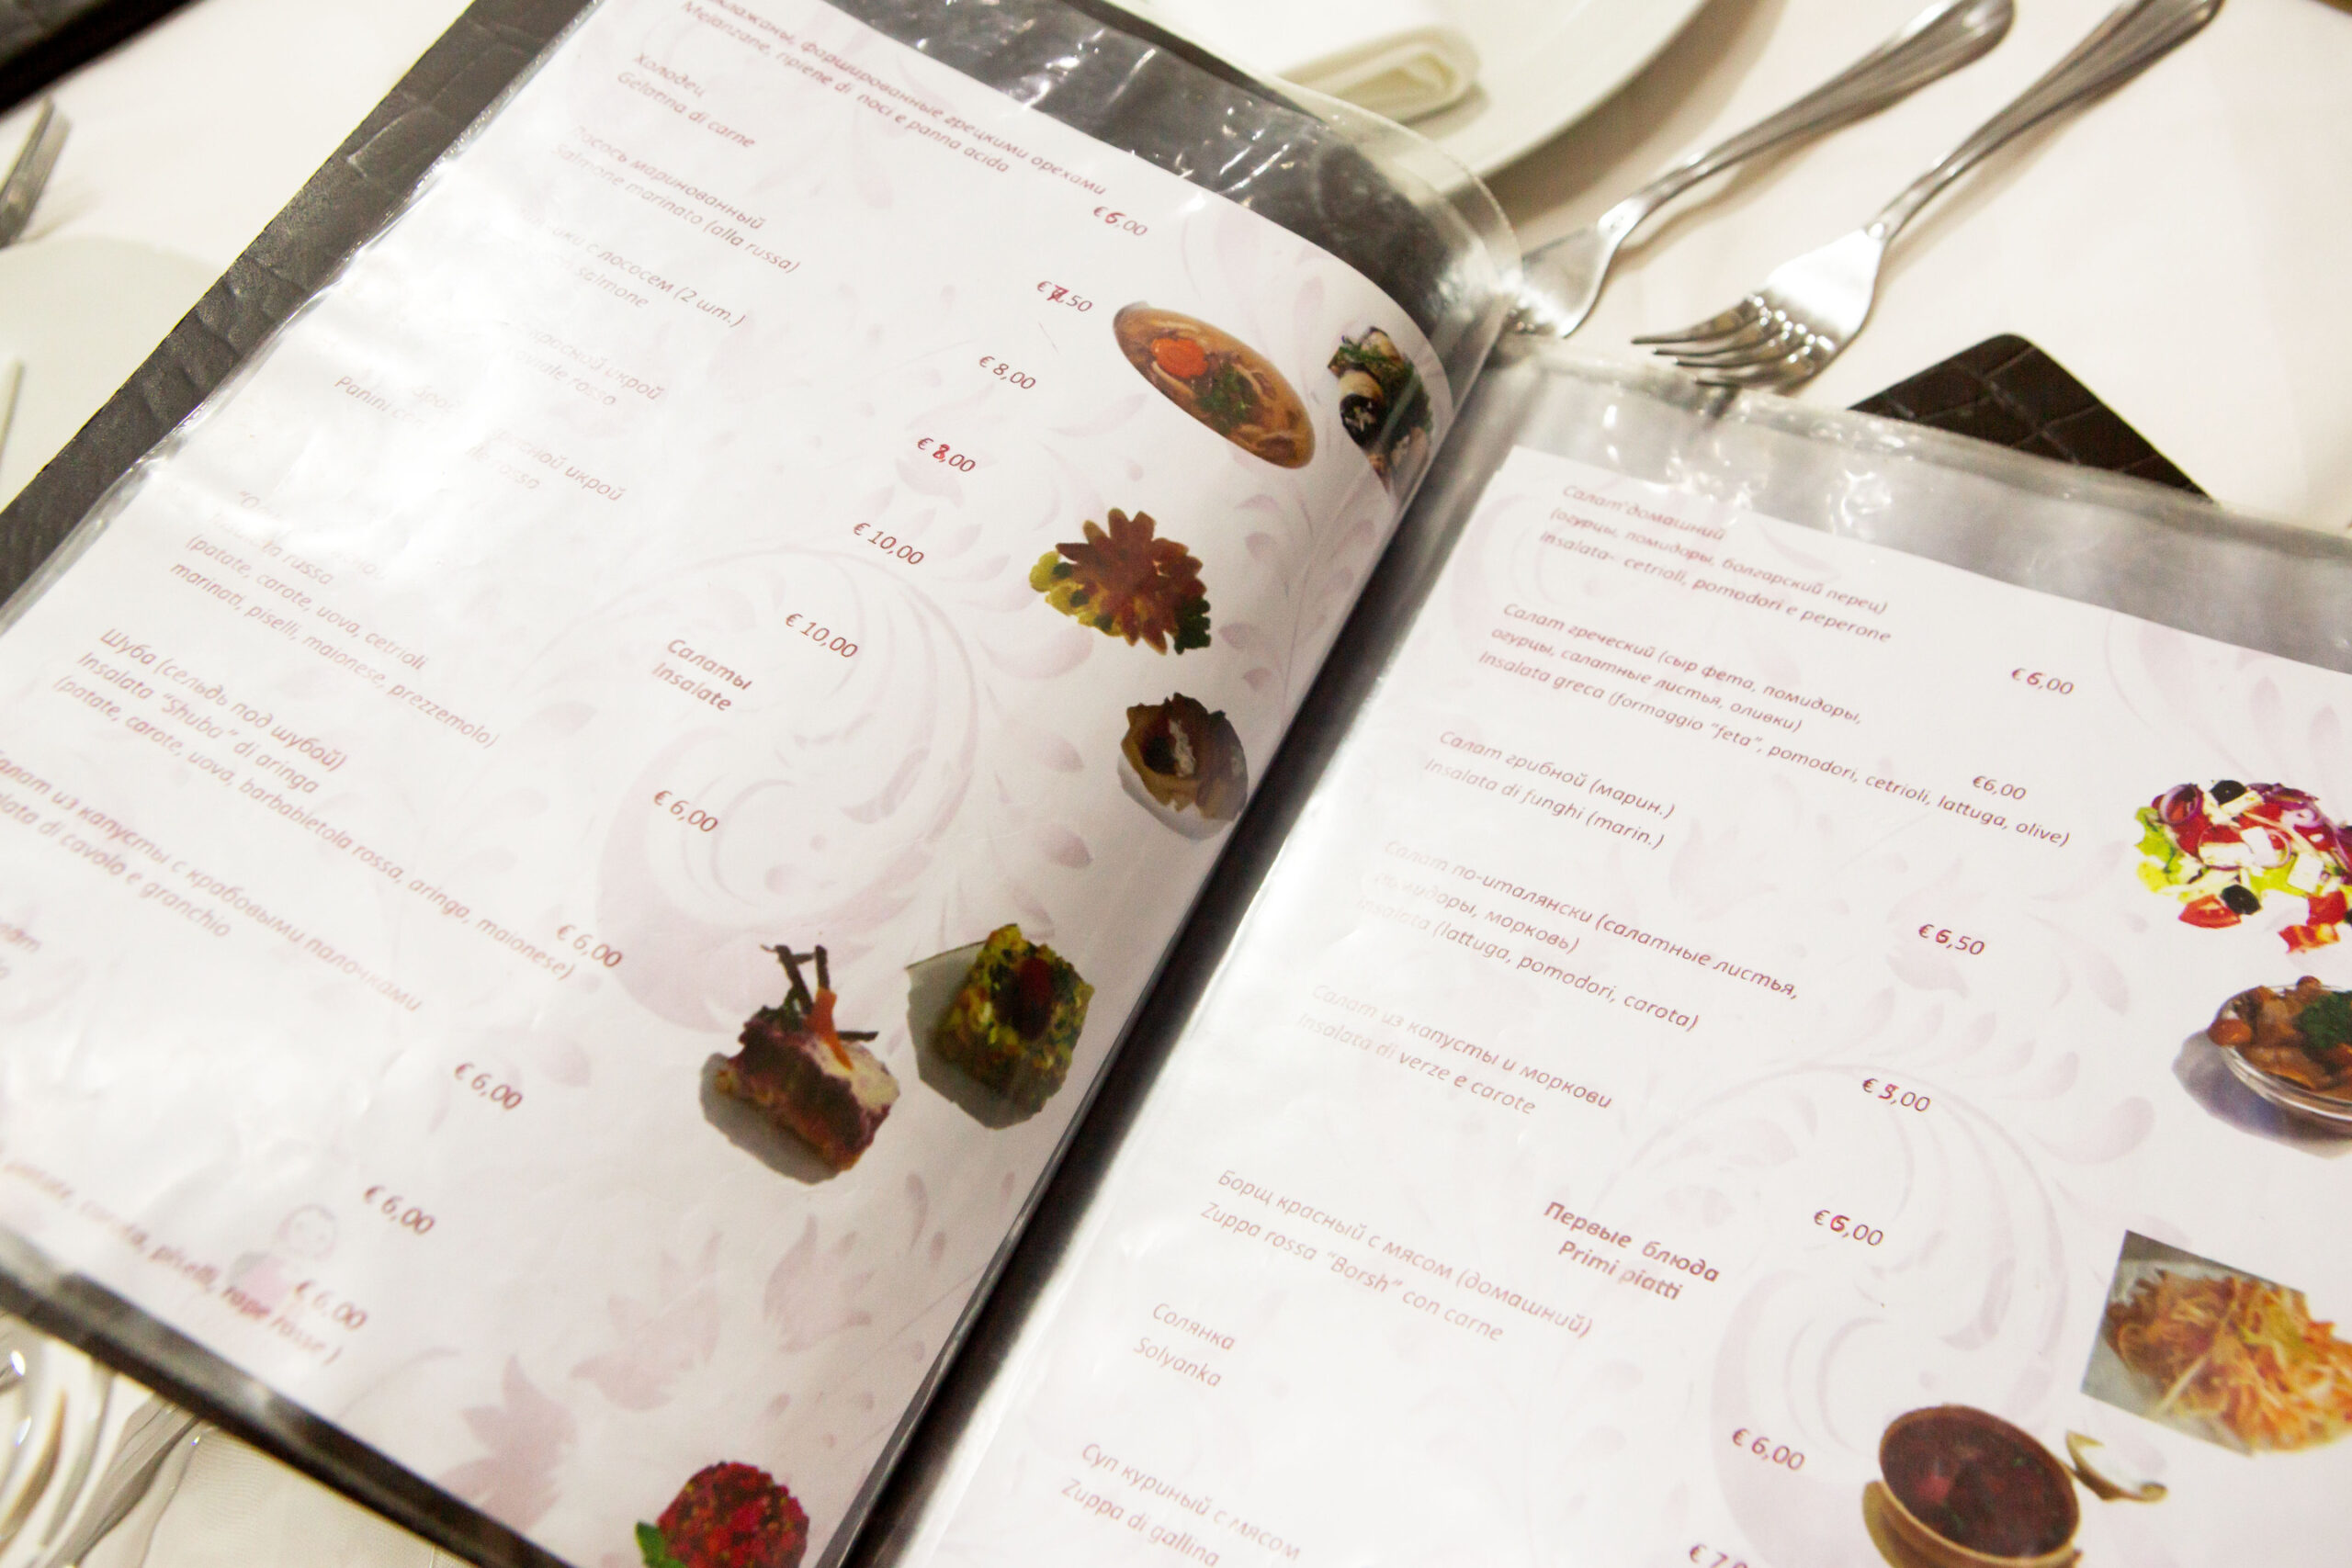 фаршированные грецкими орехами
Melanzane, ripiene di noci e panna acida
€ 6,00
Холодец
Gelatina di carne
€ 7,50
Лосось маринованный
Salmone marinato (alla russa)
€ 8,00
с лососем (2 шт.)
salmone
€ 8,00
красной икрой
caviale rosso
€ 10,00
красной икрой
Panini con rosso
€ 10,00
Салаты
Insalate
russa
(patate, carote, uova, cetrioli
marinati, piselli, maionese, prezzemolo)
€ 6,00
Шуба (сельдь под шубой)
Insalata "Shuba" di aringa
(patate, carote, uova, barbabietola rossa, aringa, maionese)
€ 6,00
Салат из капусты с крабовыми палочками
di cavolo e granchio
€ 6,00
€ 6,00
€ 6,00
patate, carota, piselli, rape rosse )
Салат домашний
(огурцы, помидоры, болгарский перец)
insalata- cetrioli, pomodori e peperone
€ 6,00
Салат греческий (сыр фета, помидоры,
огурцы, салатные листья, оливки)
Insalata greca (formaggio "feta", pomodori, cetrioli, lattuga, olive)
€6,00
Салат грибной (марин.)
Insalata di funghi (marin.)
€ 6,50
Салат по-итальянски (салатные листья,
помидоры, морковь)
Insalata (lattuga, pomodori, carota)
€ 5,00
Салат из капусты и моркови
Insalata di verze e carote
€ 6,00
Первые блюда
Primi piatti
Борщ красный с мясом (домашний)
Zuppa rossa "Borsh" con carne
€ 6,00
Солянка
Solyanka
Суп куриный с мясом
Zuppa di gallina